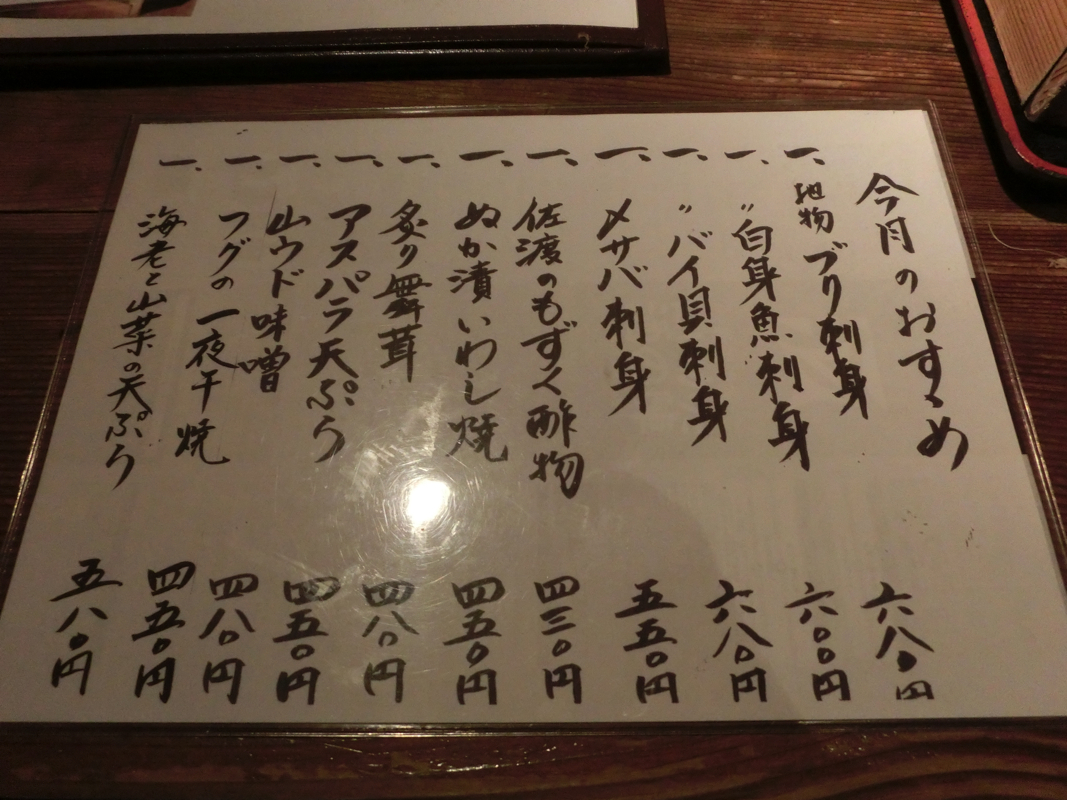 今月のおすゝめ
一、地物 ブリ刺身 六八〇円
一、〃 白身魚刺身 六〇〇円
一、〃 バイ貝刺身 六八〇円
一、〆サバ刺身 五五〇円
一、佐渡のもずく酢物 四三〇円
一、ぬか漬いわし焼 四五〇円
一、炙り舞茸 四八〇円
一、アスパラ天ぷら 四五〇円
一、山ウド味噌 四八〇円
一、フグの一夜干焼 四五〇円
一、海老と山菜の天ぷら 五八〇円